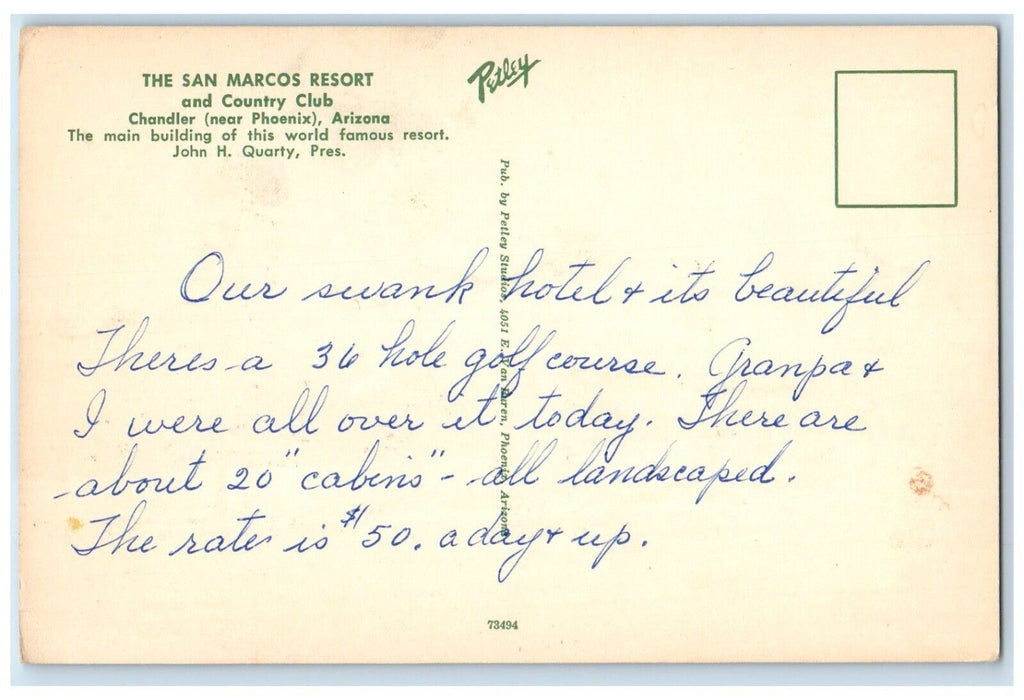 THE SAN MARCOS RESORT
and Country Club
Chandler (near Phoenix), Arizona
The main building of this world famous resort.
John H. Quarty, Pres.
Petley
Pub. by Petley Studios, 4051 E. Van Buren, Phoenix, Arizona
Our swank hotel & its beautiful
Theres a 36 hole golf course. Granpa &
I were all over it today. There are
about 20 "cabins" - all landscaped.
The rate is $50. a day & up.
73494